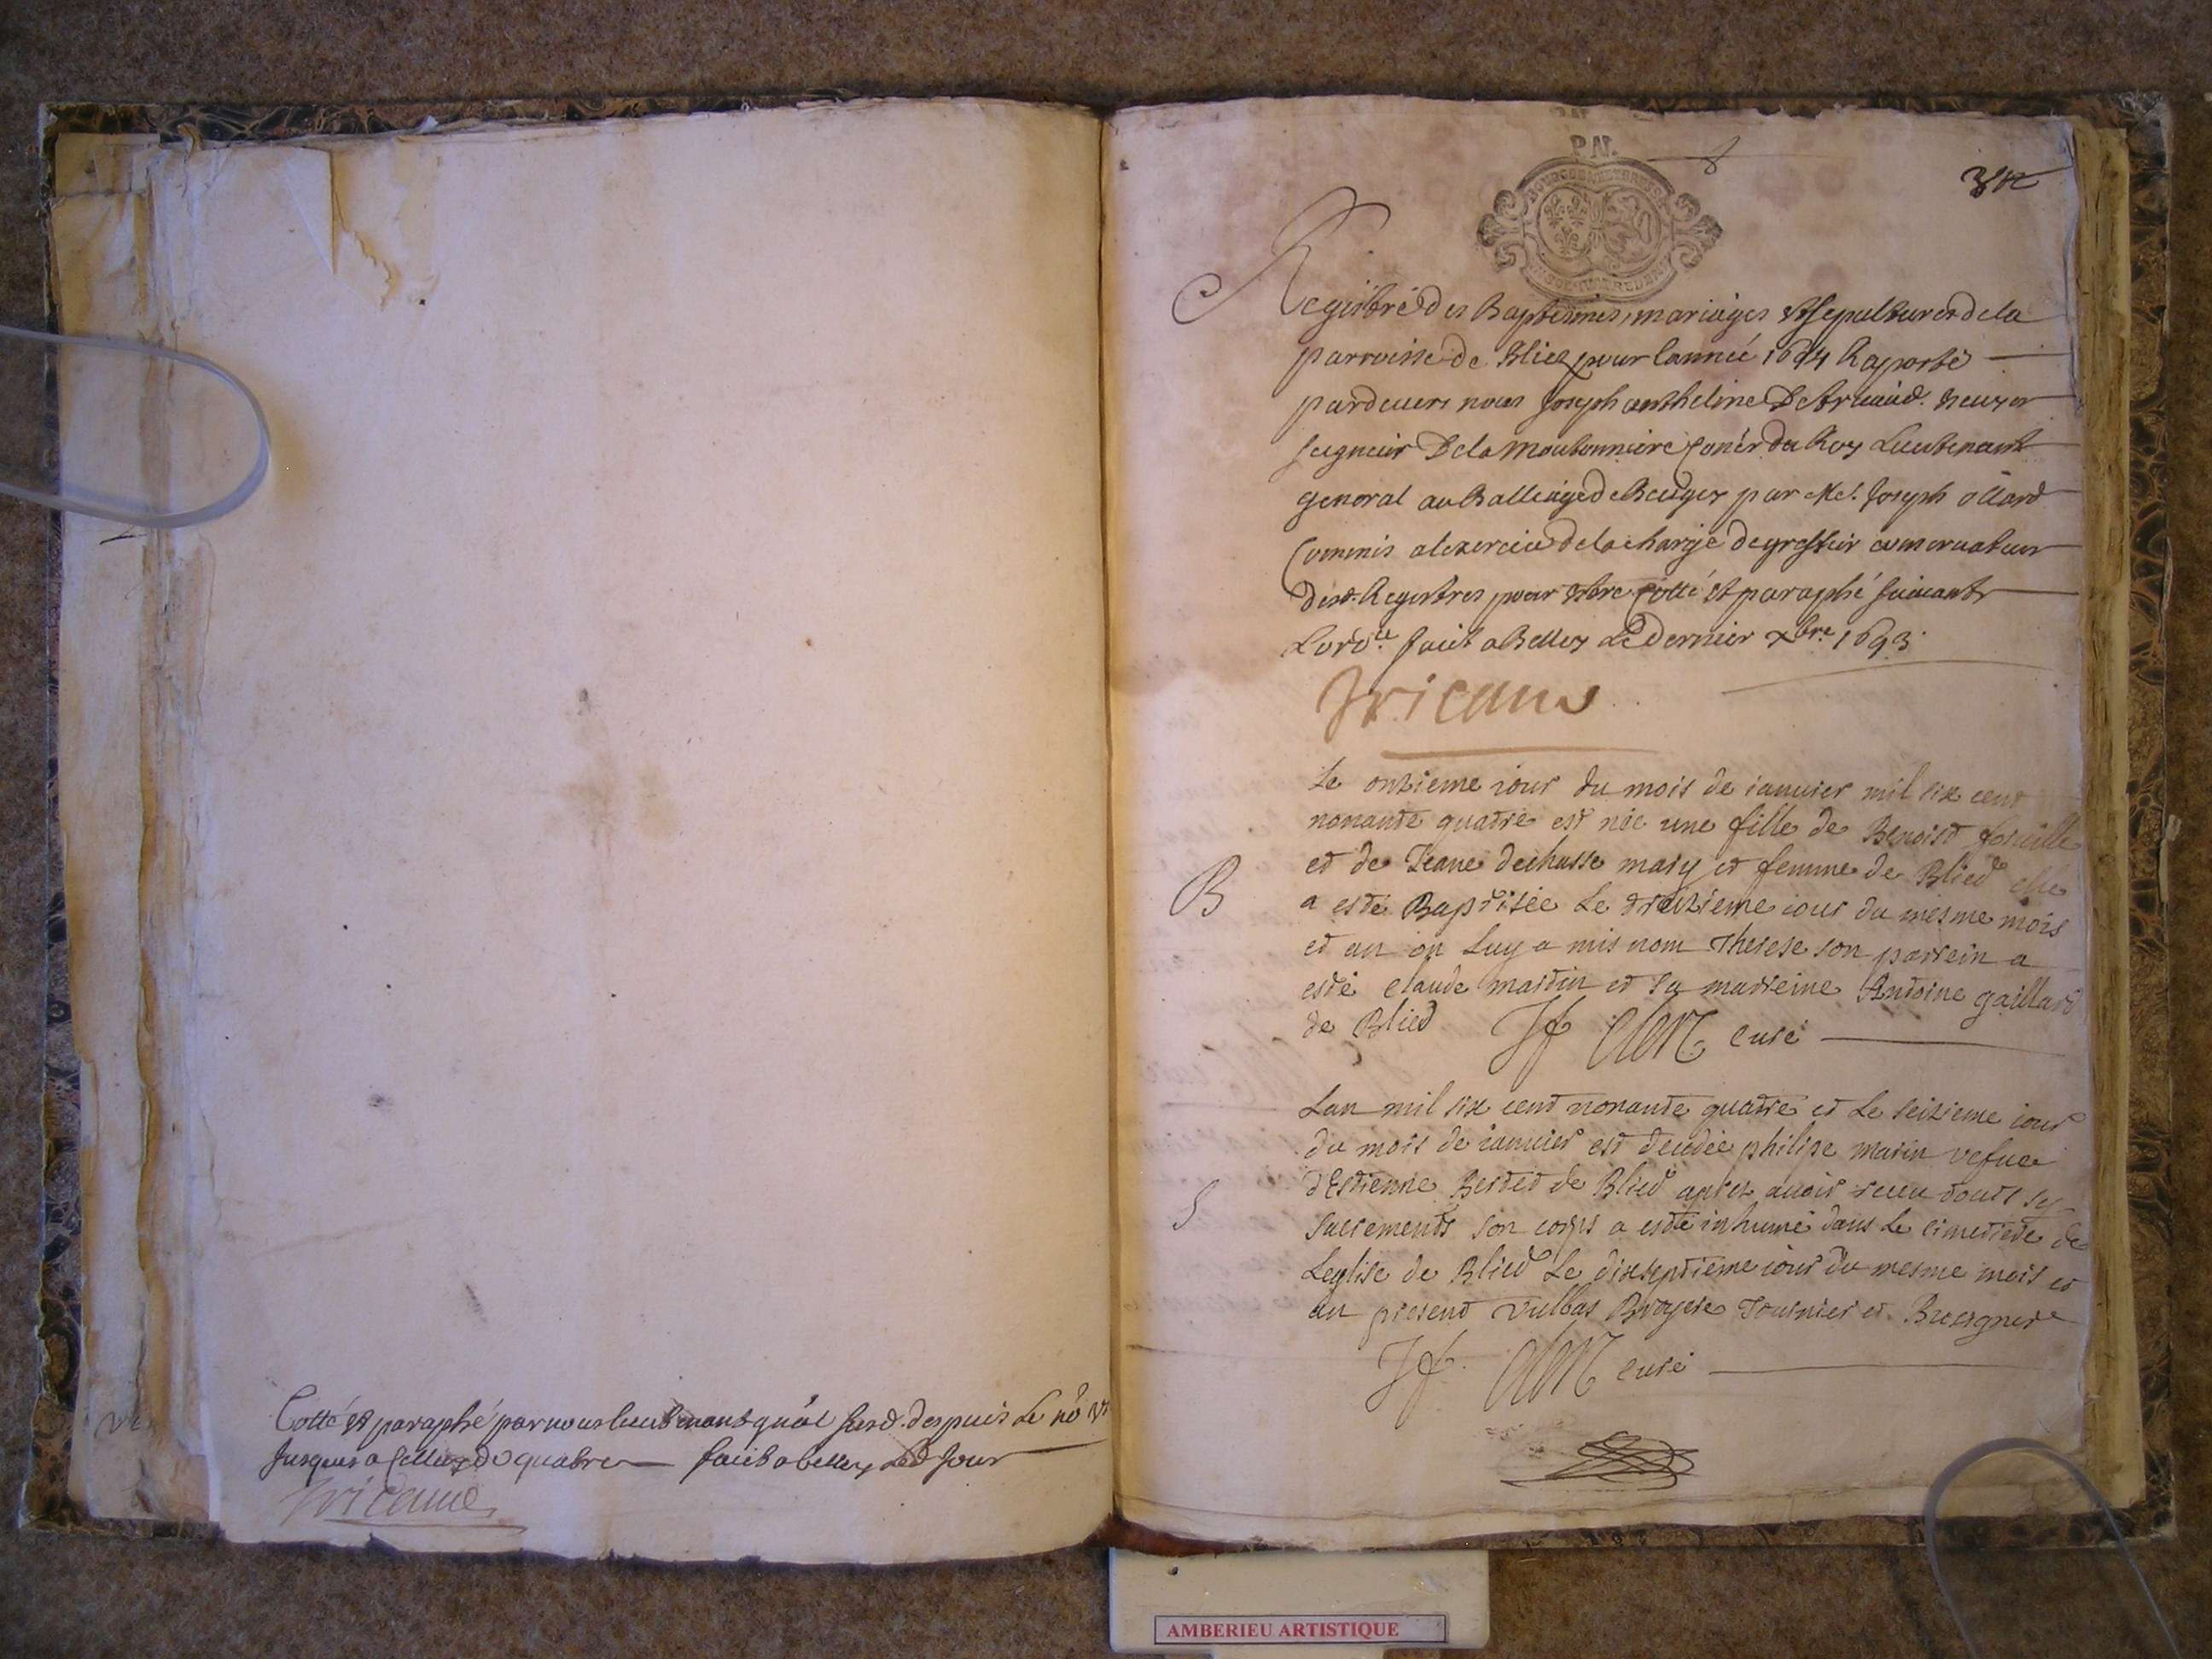 Cotté et paraphé par nous lieutenant gnâl susd. despuis le no un
jusques a celluy de quatre faict a belley led jour
Tricaud
PAR.
BOURGOGNE ET BRESSE
Registre des Baptesmes, mariages et sepultures de la
parroisse de Blied pour l'année 1694 Raporté
pardevers nous Joseph anthelme De
seigneur De la Moutonniere Conér du Roy Lieutenant
general au Balliage de Beugey par Me. Joseph ollard
Commis a lexercice de la charge de greffier conservateur
desd. Registres pour estre cotté et paraphé suivant
Lord.ce faict a Belley Le dernier xbre 1693.
Tricaud
Le onzieme iour du mois de ianvier mil six cent
nonante quatre est née une fille de Benoist
et de Jeane dechasse mary et femme de Blied elle
B
a esté Baptisée Le treizieme iour du mesme mois
et an on Luy a mis nom Therese son parrein a
esté claude martin et sa marreine Antoine gaillard
de Blied curé
Lan mil six cent nonante quatre et Le seizieme iour
du mois de ianvier est decedée philipe marin vefue
d'Estienne Bertet de Blied apres auoir receu touts les
S
sacrements son corps a esté inhumé dans Le cimetiere de
Leglise de Blied Le dixseptieme iour du mesme mois et
an present vulbas Bruyere tournier et
curé
AMBERIEU ARTISTIQUE